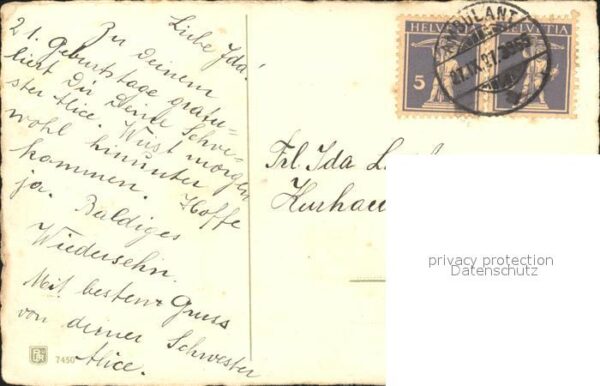 Liebe Ida!
Zu Deinem
21. Geburtstage gratu-
liert Dir Deine Schwe-
ster Alice. Wirst morgen
wohl hinunter
kommen. Hoffe
ja. Baldiges
Wiedersehn.
Mit bestem Gruss
von deiner Schwester
Alice.
7450
HELVETIA HELVETIA
5
AMBULANT
27.IX.21
Frl. Ida
privacy protection
Datenschutz